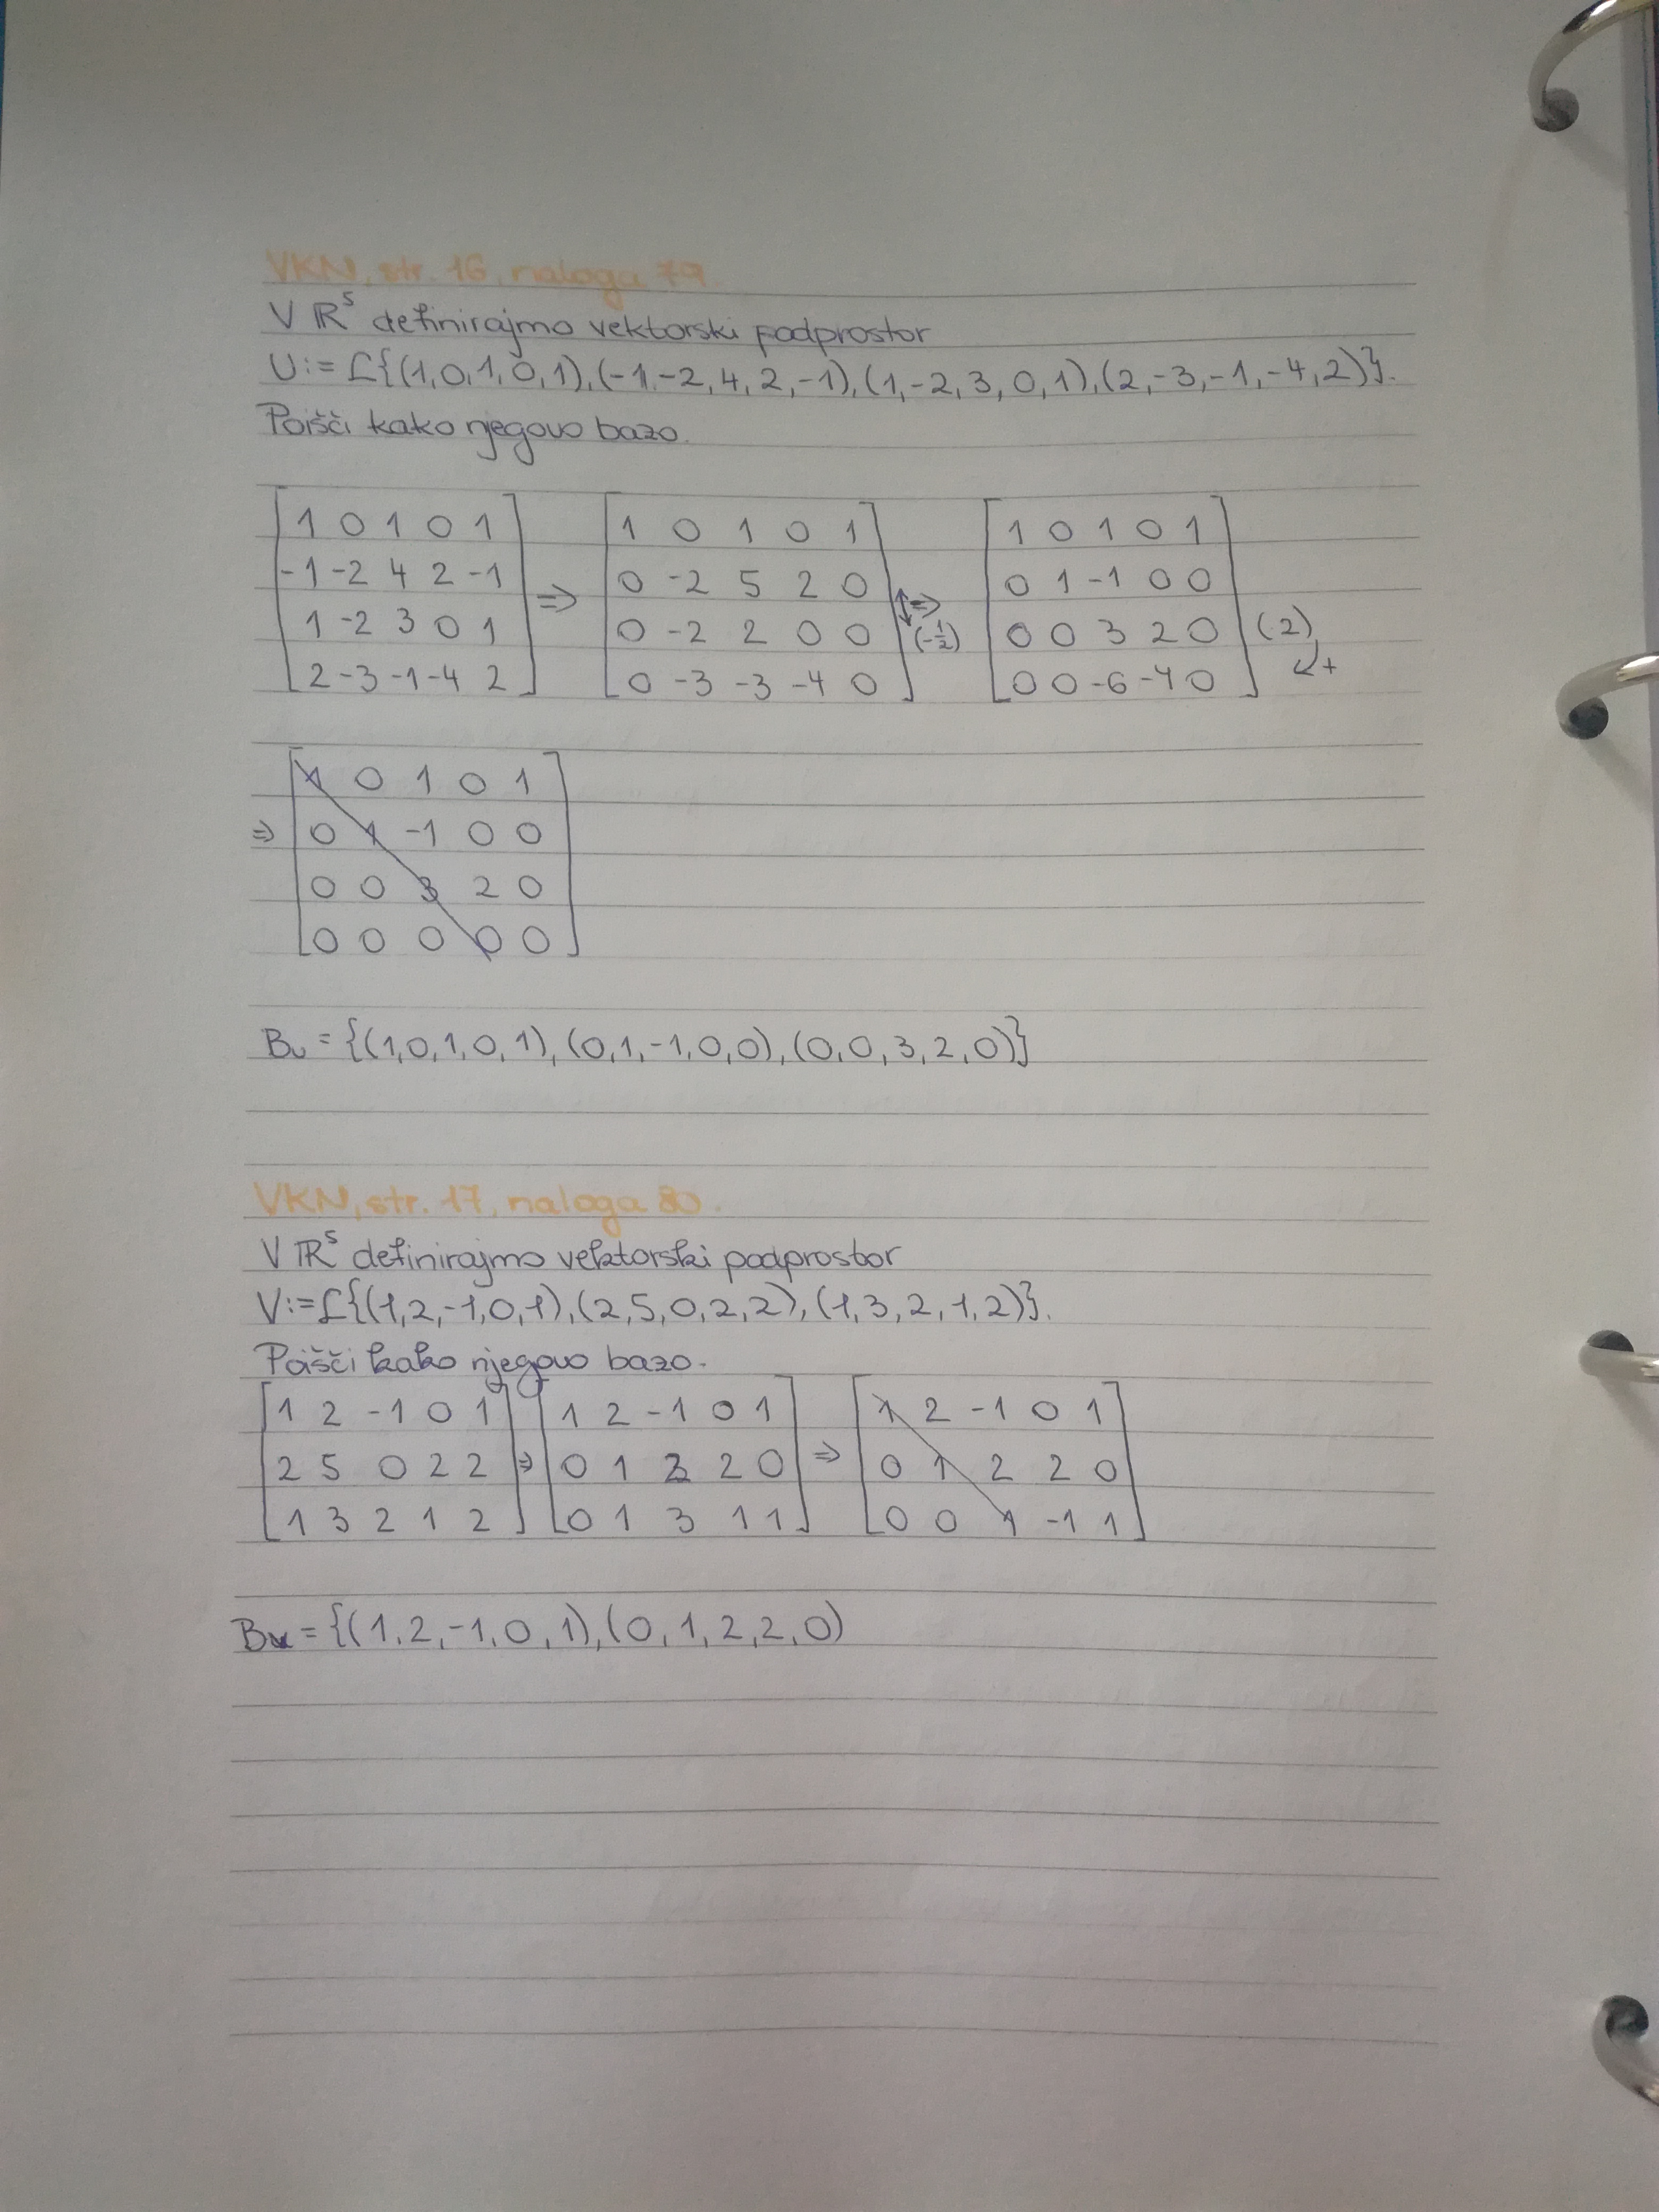 VKN, str. 16, naloga 79.
V ℝ⁵ definirajmo vektorski podprostor
U:= ℒ{(1,0,1,0,1),(-1,-2,4,2,-1),(1,-2,3,0,1),(2,-3,-1,-4,2)}.
Poišči kako njegovo bazo.
1 0 1 0 1
-1 -2 4 2 -1
1 -2 3 0 1
2 -3 -1 -4 2
⇒
1 0 1 0 1
0 -2 5 2 0
0 -2 2 0 0 (-½)
0 -3 -3 -4 0
⇒
1 0 1 0 1
0 1 -1 0 0
0 0 3 2 0 (·2)
0 0 -6 -4 0 +
⇒
1 0 1 0 1
0 1 -1 0 0
0 0 3 2 0
0 0 0 0 0
Bᵤ = {(1,0,1,0,1),(0,1,-1,0,0),(0,0,3,2,0)}
VKN, str. 17, naloga 80.
V ℝ⁵ definirajmo vektorski podprostor
V:=ℒ{(1,2,-1,0,1),(2,5,0,2,2),(1,3,2,1,2)}.
Poišči kako njegovo bazo.
1 2 -1 0 1
2 5 0 2 2
1 3 2 1 2
⇒
1 2 -1 0 1
0 1 2 2 0
0 1 3 1 1
⇒
1 2 -1 0 1
0 1 2 2 0
0 0 1 -1 1
B = {(1,2,-1,0,1),(0,1,2,2,0)